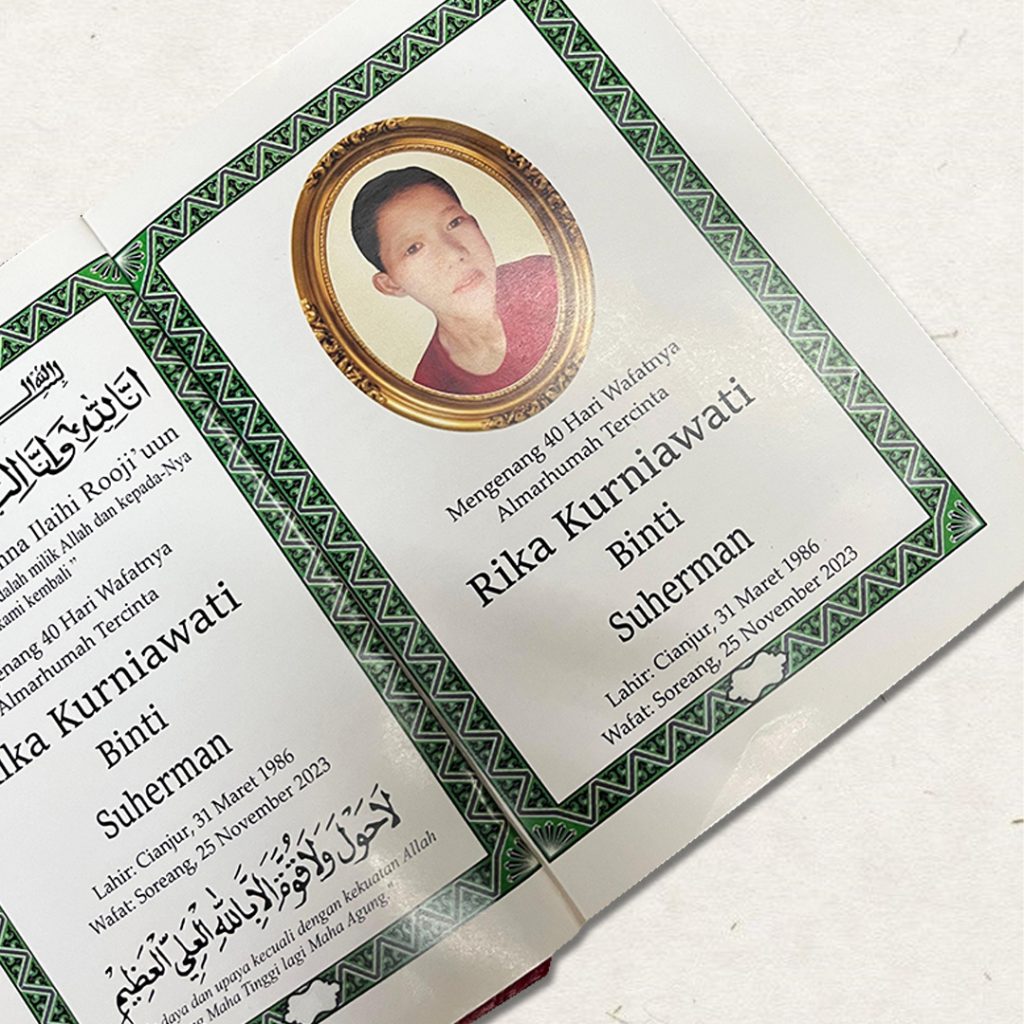 إنا لله وإنا
Ilaihi Rooji'uun
milik Allah dan kepada-Nya
kami kembali"
40 Hari Wafatnya
Almarhumah Tercinta
Kurniawati
Binti
Suherman
Lahir: Cianjur, 31 Maret 1986
Wafat: Soreang, 25 November 2023
لَا حَوْلَ وَلَا قُوَّةَ إِلَّا بِاللهِ الْعَلِيِّ الْعَظِيْمِ
daya dan upaya kecuali dengan kekuatan Allah
Maha Tinggi lagi Maha Agung."
Mengenang 40 Hari Wafatnya
Almarhumah Tercinta
Rika Kurniawati
Binti
Suherman
Lahir: Cianjur, 31 Maret 1986
Wafat: Soreang, 25 November 2023